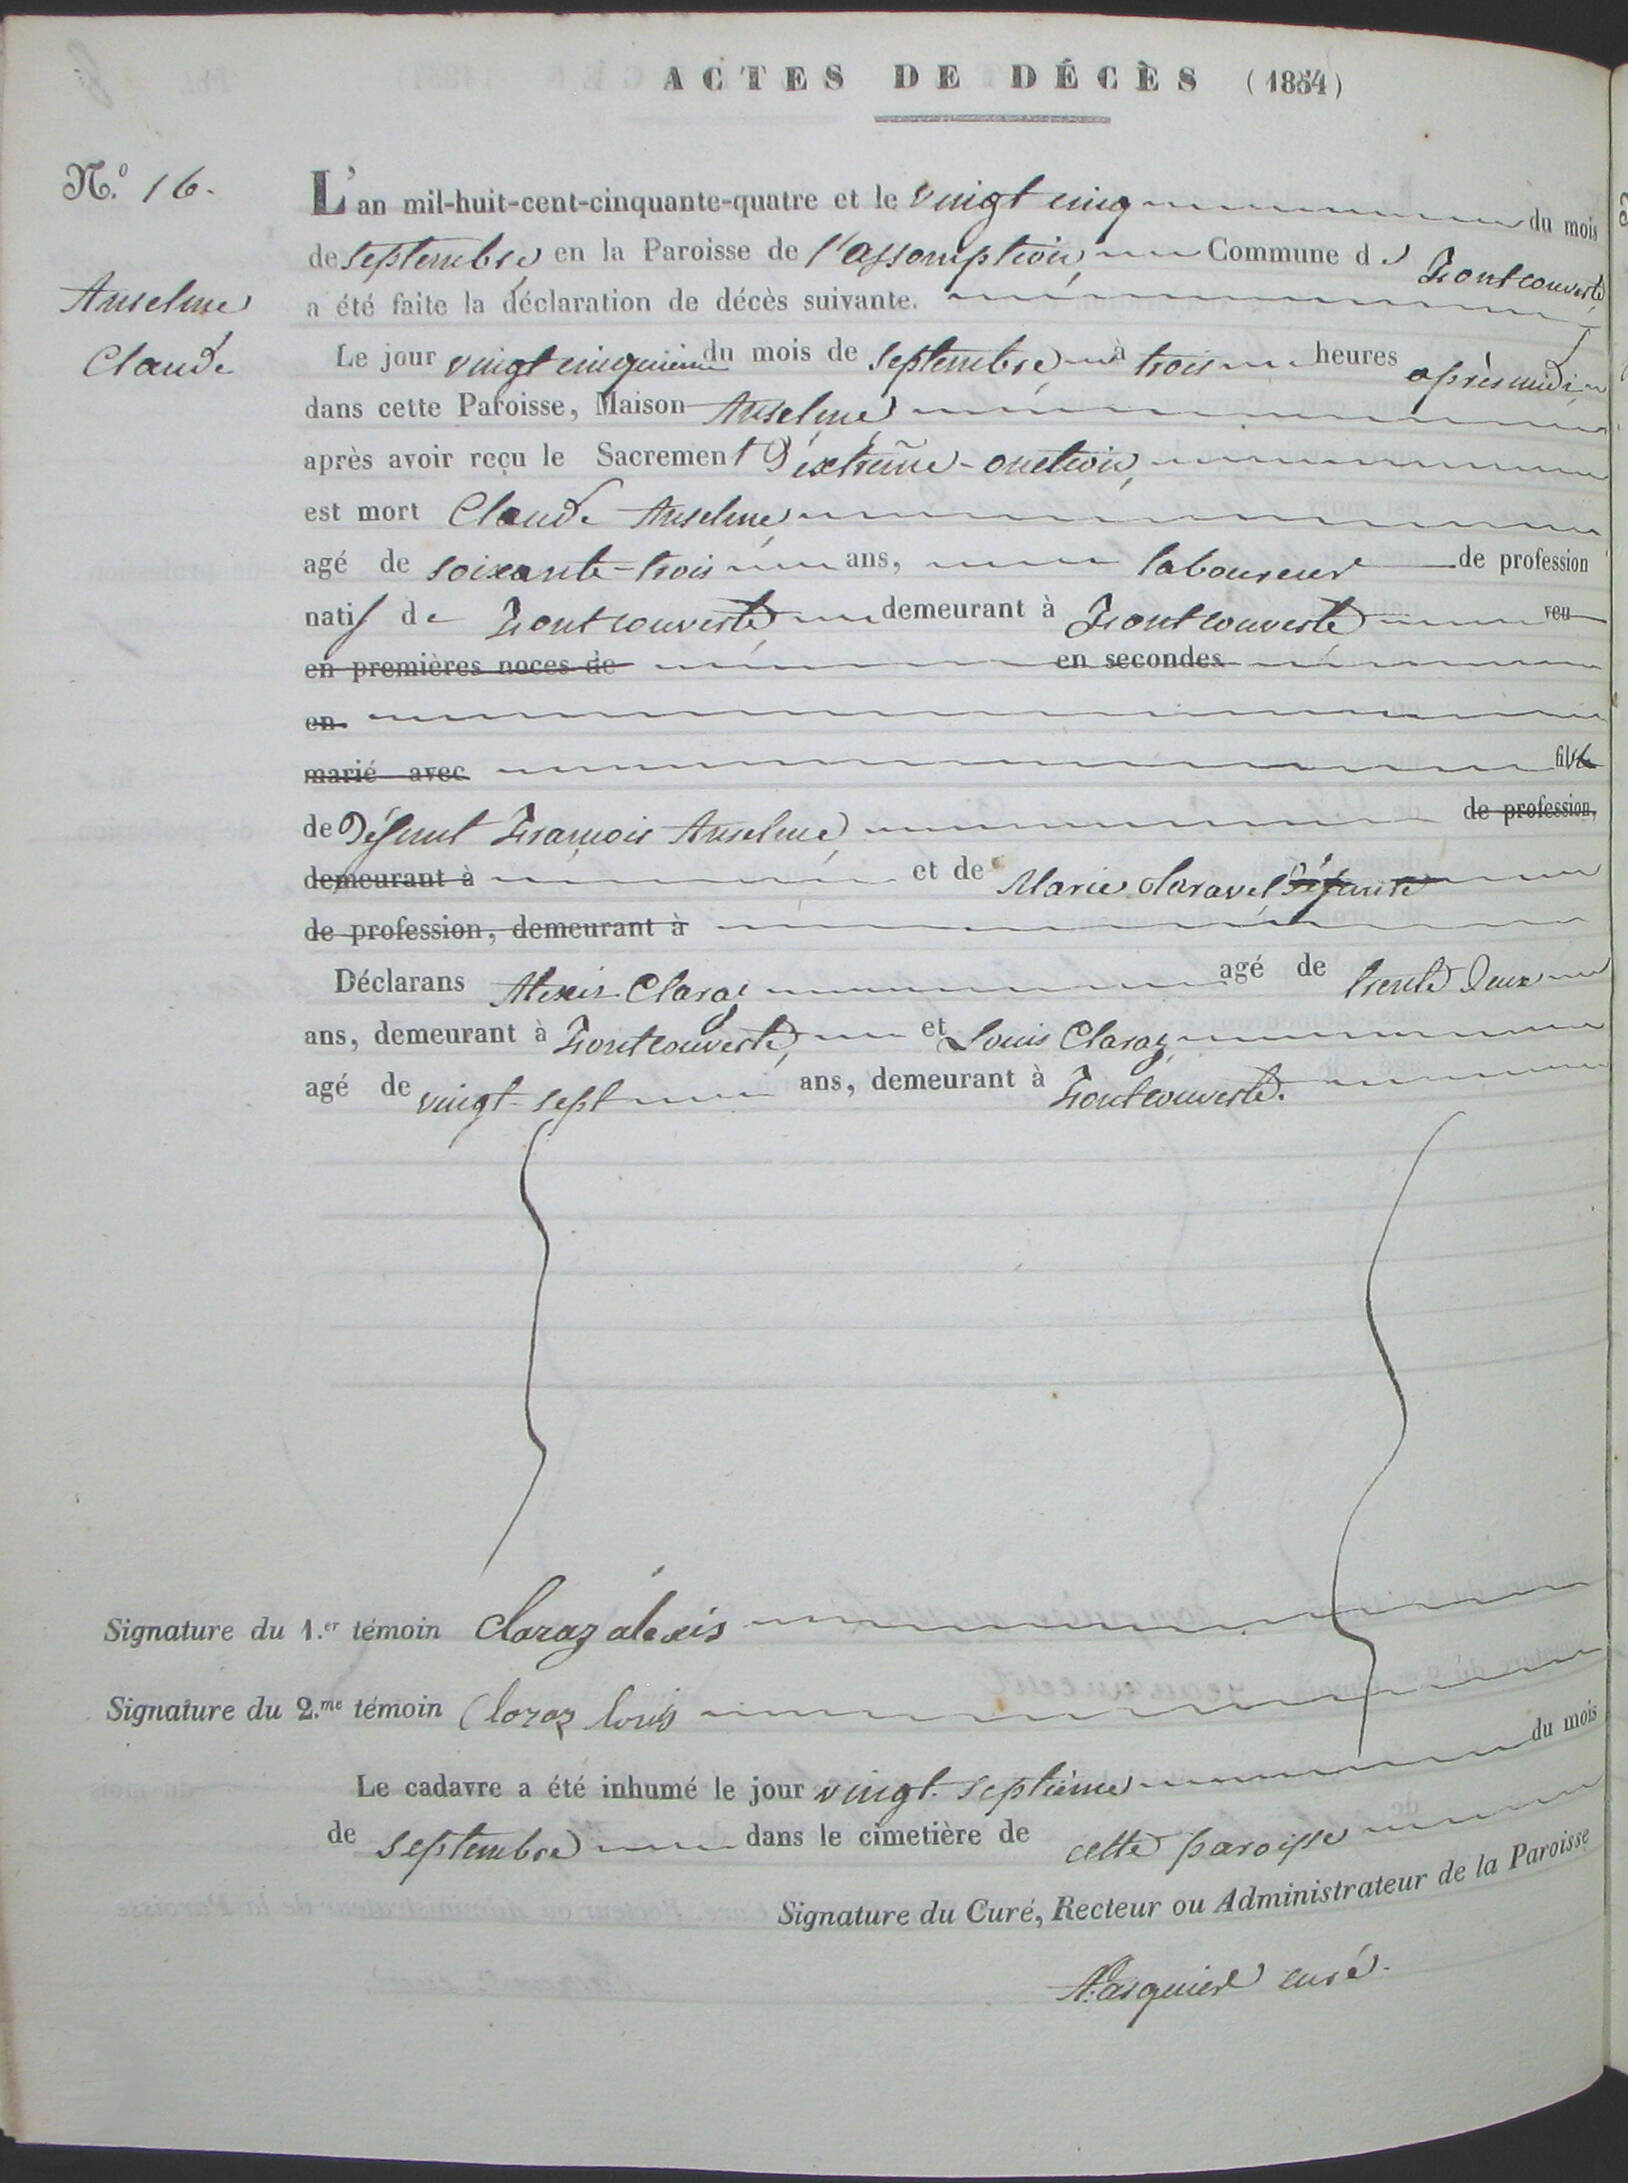 ACTES DE DÉCÈS (1854)
N.º 16.
L'an mil-huit-cent-cinquante-quatre et le vingt cinq du mois
de septembre, en la Paroisse de l'assomption, Commune de Fontcouverte
a été faite la déclaration de décès suivante.
Anselme
Claude
Le jour vingt cinquieme du mois de septembre à trois heures après midi
dans cette Paroisse, Maison Anselme
après avoir reçu le Sacrement d'extrême-onction,
est mort Claude Anselme
agé de soixante-trois ans, laboureur de profession
natif de Fontcouverte demeurant à Fontcouverte veu
en premières noces de en secondes
en
marié avec fils
de défunt François Anselme de profession,
demeurant à et de Marie Claravel défunte
de profession, demeurant à
Déclarans Alexis Claraz agé de trente deux
ans, demeurant à Fontcouverte, et Louis Claraz,
agé de vingt-sept ans, demeurant à Fontcouverte.
Signature du 1.er témoin Claraz alexis
Signature du 2.me témoin Claraz louis
Le cadavre a été inhumé le jour vingt-septième du mois
de septembre dans le cimetière de cette paroisse
Signature du Curé, Recteur ou Administrateur de la Paroisse
curé.